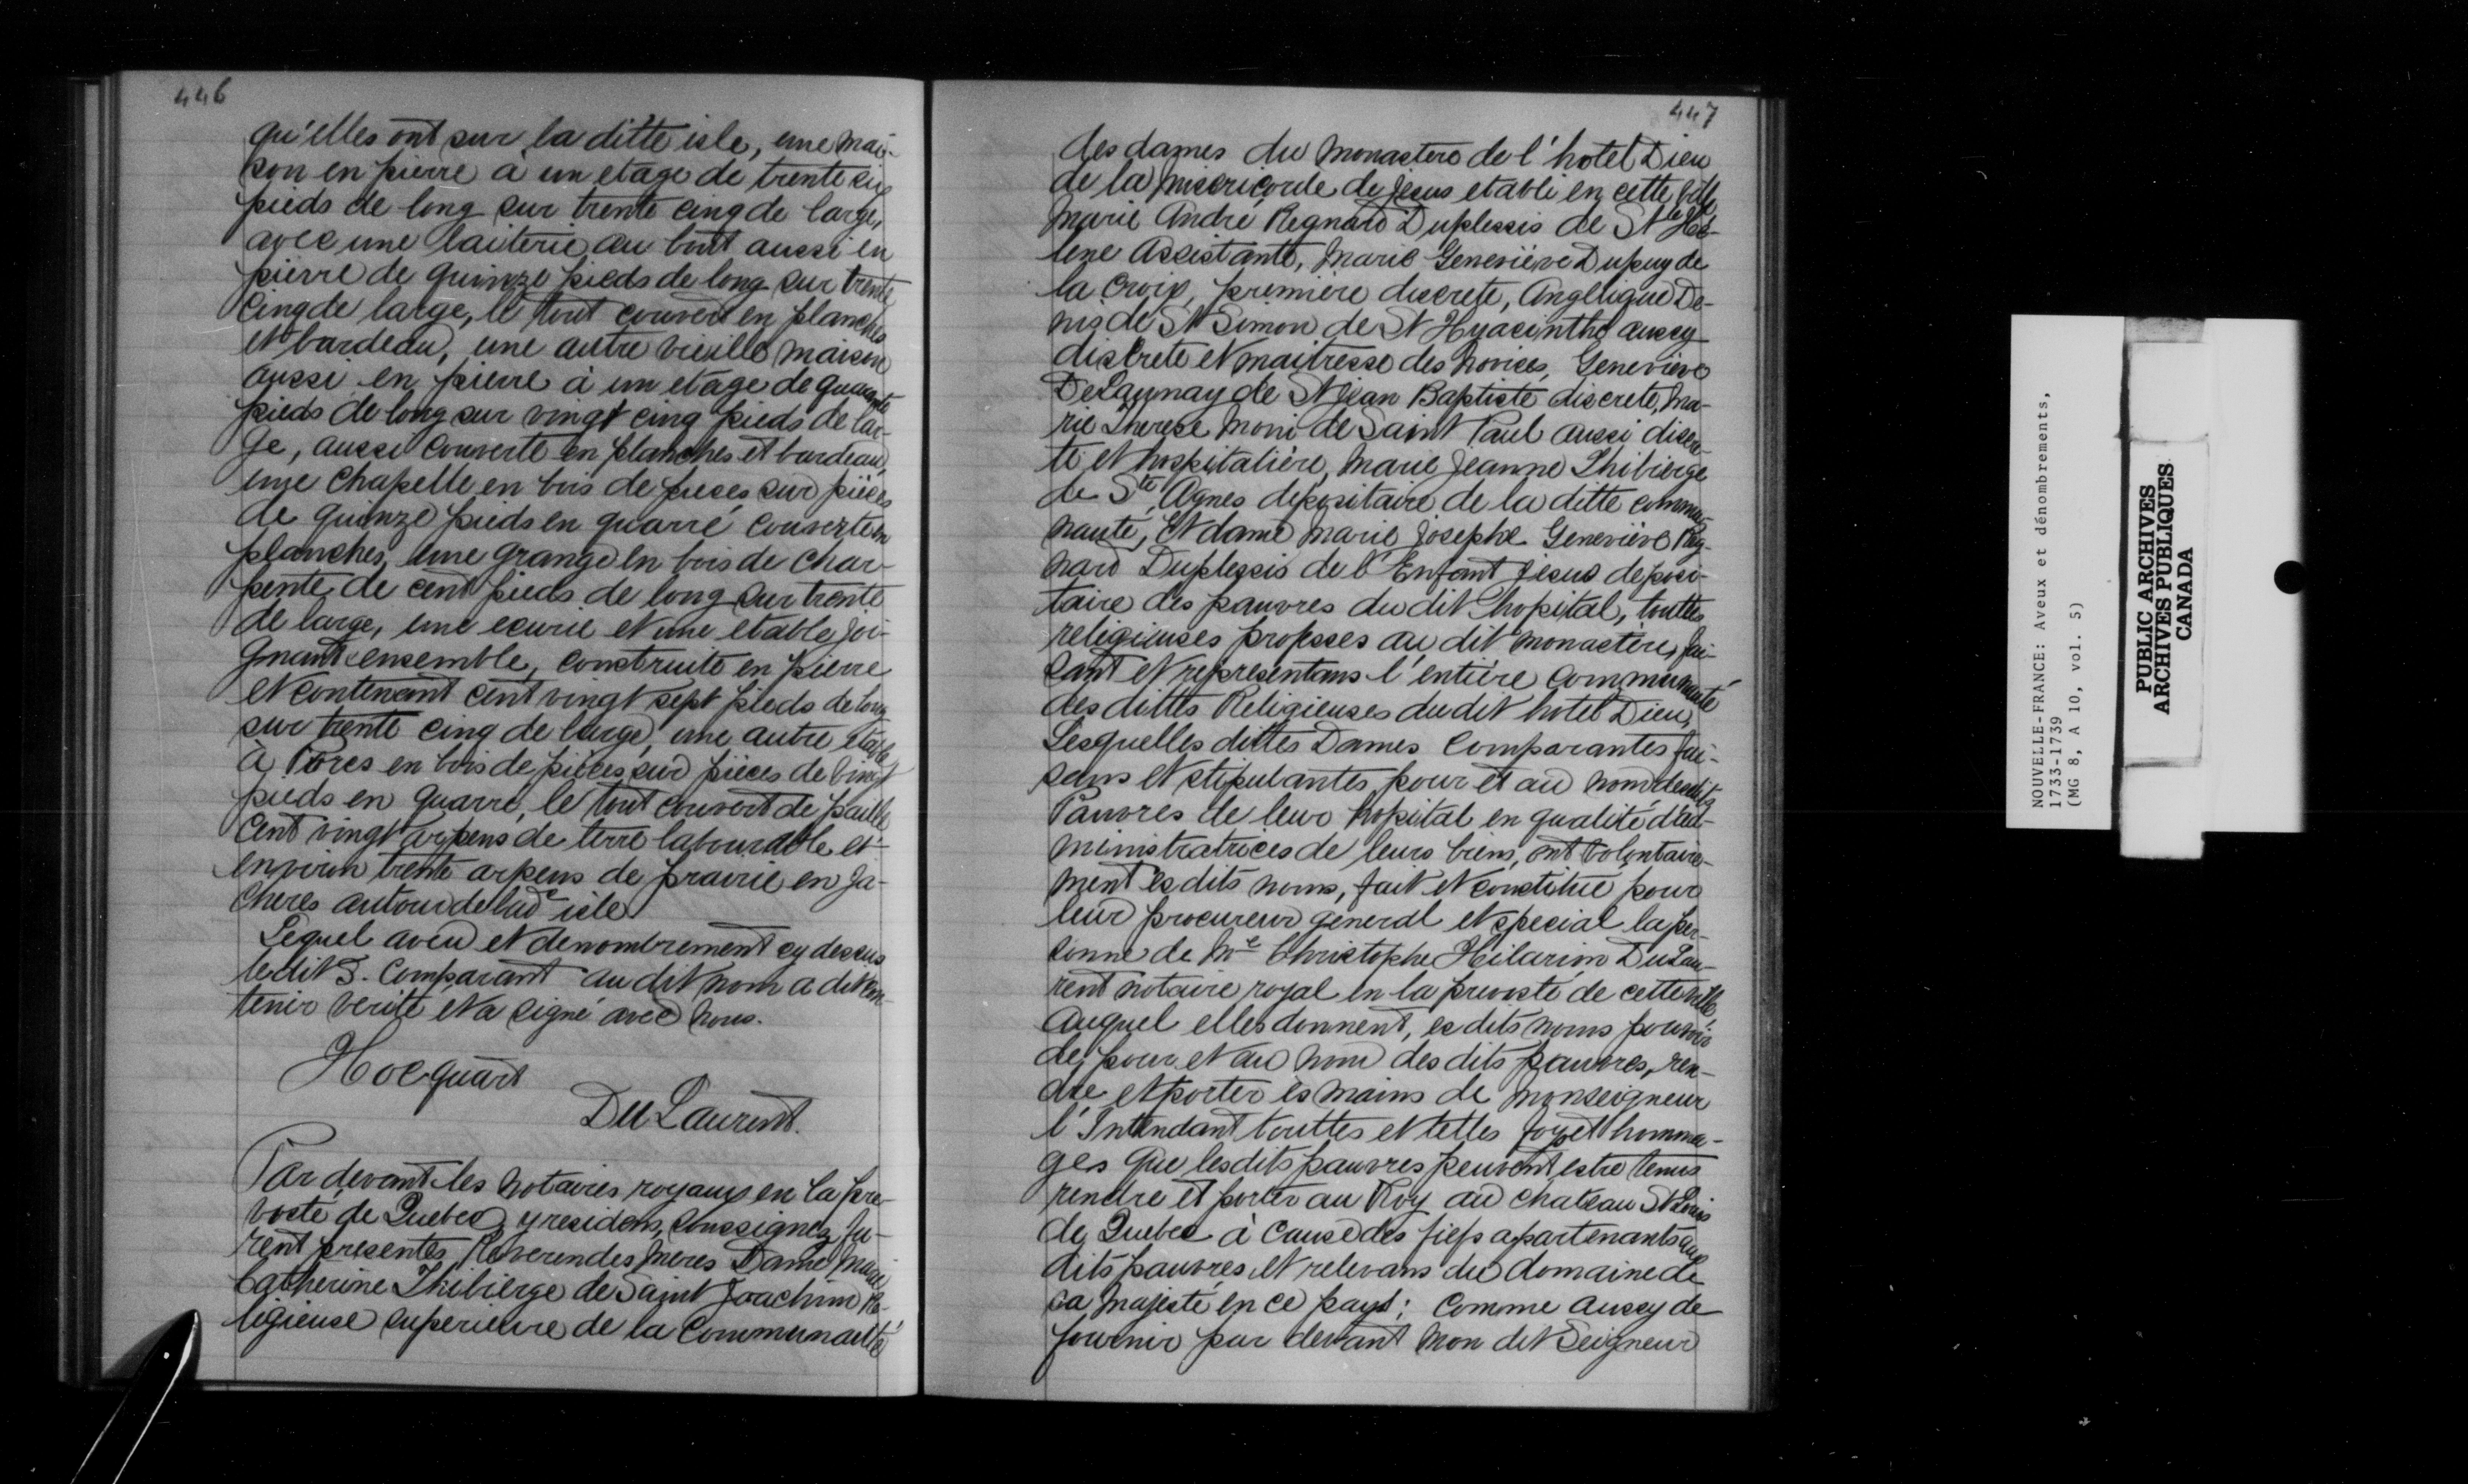 446
qu'elles ont sur la ditte isle, une mai-
son en pierre à un etage de trente six
pieds de long sur trente cinq de large,
avec une laiterie au bout aussi en
pierre de quinze pieds de long sur trente
cinq de large, le tout couvert en planches
et bardeau, une autre vieille maison
aussi en pierre à un etage de quarante
pieds de long sur vingt cinq pieds de lar-
ge, aussi couverte en planches et bardeau,
une chapelle en bois de pieces sur pièces
de quinze pieds en quarré couverte en
planches, une grange en bois de char-
pente de cent pieds de long sur trente
de large, une ecurie et une etable joi-
gnant ensemble, construite en pierre
et contenant cent vingt sept pieds de long
sur trente cinq de large, une autre etable
à Porcs en bois de pièces sur pièces de vingt
pieds en quarré, le tout couvert de paille
cent vingt arpens de terre labourable et
environ trente arpens de prairie en ja-
cheres autour de lad.e isle
Lequel aveu et denombrement cy dessus
ledit S. Comparant au dit nom a dit con-
tenir verité et a signé avec nous.
Hocquart
Du Laurent.
Par devant les notaires royaux en la pre-
vosté de Quebec y residens, soussignez fu-
rent presentes Reverendes meres Dame Marie
Catherine Thibierge de Saint Joachim Re-
ligieuse superieure de la Communauté
447
des dames du monastere de l'hotel Dieu
de la misericorde de Jesus etabli en cette ville
Marie André Regnard Duplessis de Ste He-
lene Assistante, Marie Geneviève Dupuy de
la Croix, première discrete, Angelique De-
nis de St Simon de St Hyacinthe aussy
discrete et maitresse des novices, Geneviève
DeLaunay de St Jean Baptiste discrete, Ma-
rie Therese Moni de Saint Paul aussi discre-
te et hospitalière, Marie Jeanne Thibierge
de Ste Agnes depositaire de la ditte commu-
nauté, Et dame Marie Josephe Geneviève Reg-
nard Duplessis de l'Enfant Jesus deposi-
taire des pauvres du dit hopital, touttes
religieuses professes au dit monastère, fai-
sant et representans l'entière communauté
des dittes Religieuses du dit hotel Dieu,
Lesquelles dittes Dames Comparantes fai-
sans et stipulantes pour et au nom desdits
Pauvres de leur hopital en qualité d'ad-
ministratrices de leurs biens, ont volontaire-
ment es dits noms, fait et constitué pour
leur procureur general et special la per-
sonne de Me Christophe Hilarion Du Lau-
rent notaire royal en la prevosté de cette ville,
auquel elles donnent, es dits noms pouvoir
de, pour et au nom des dits pauvres, ren-
dre et porter ès mains de Monseigneur
l'Intendant touttes et telles foy et homma-
ges que lesdits pauvres peuvent estre tenus
rendre et porter au Roy au chateau St Louis
de Quebec à cause des fiefs apartenants aux
dits pauvres et relevans du domaine de
sa majesté en ce pays; Comme aussy de
fournir par devant mon dit Seigneur
NOUVELLE-FRANCE: Aveux et dénombrements,
1733-1739
(MG 8, A 10, vol. 5)
PUBLIC ARCHIVES
ARCHIVES PUBLIQUES
CANADA